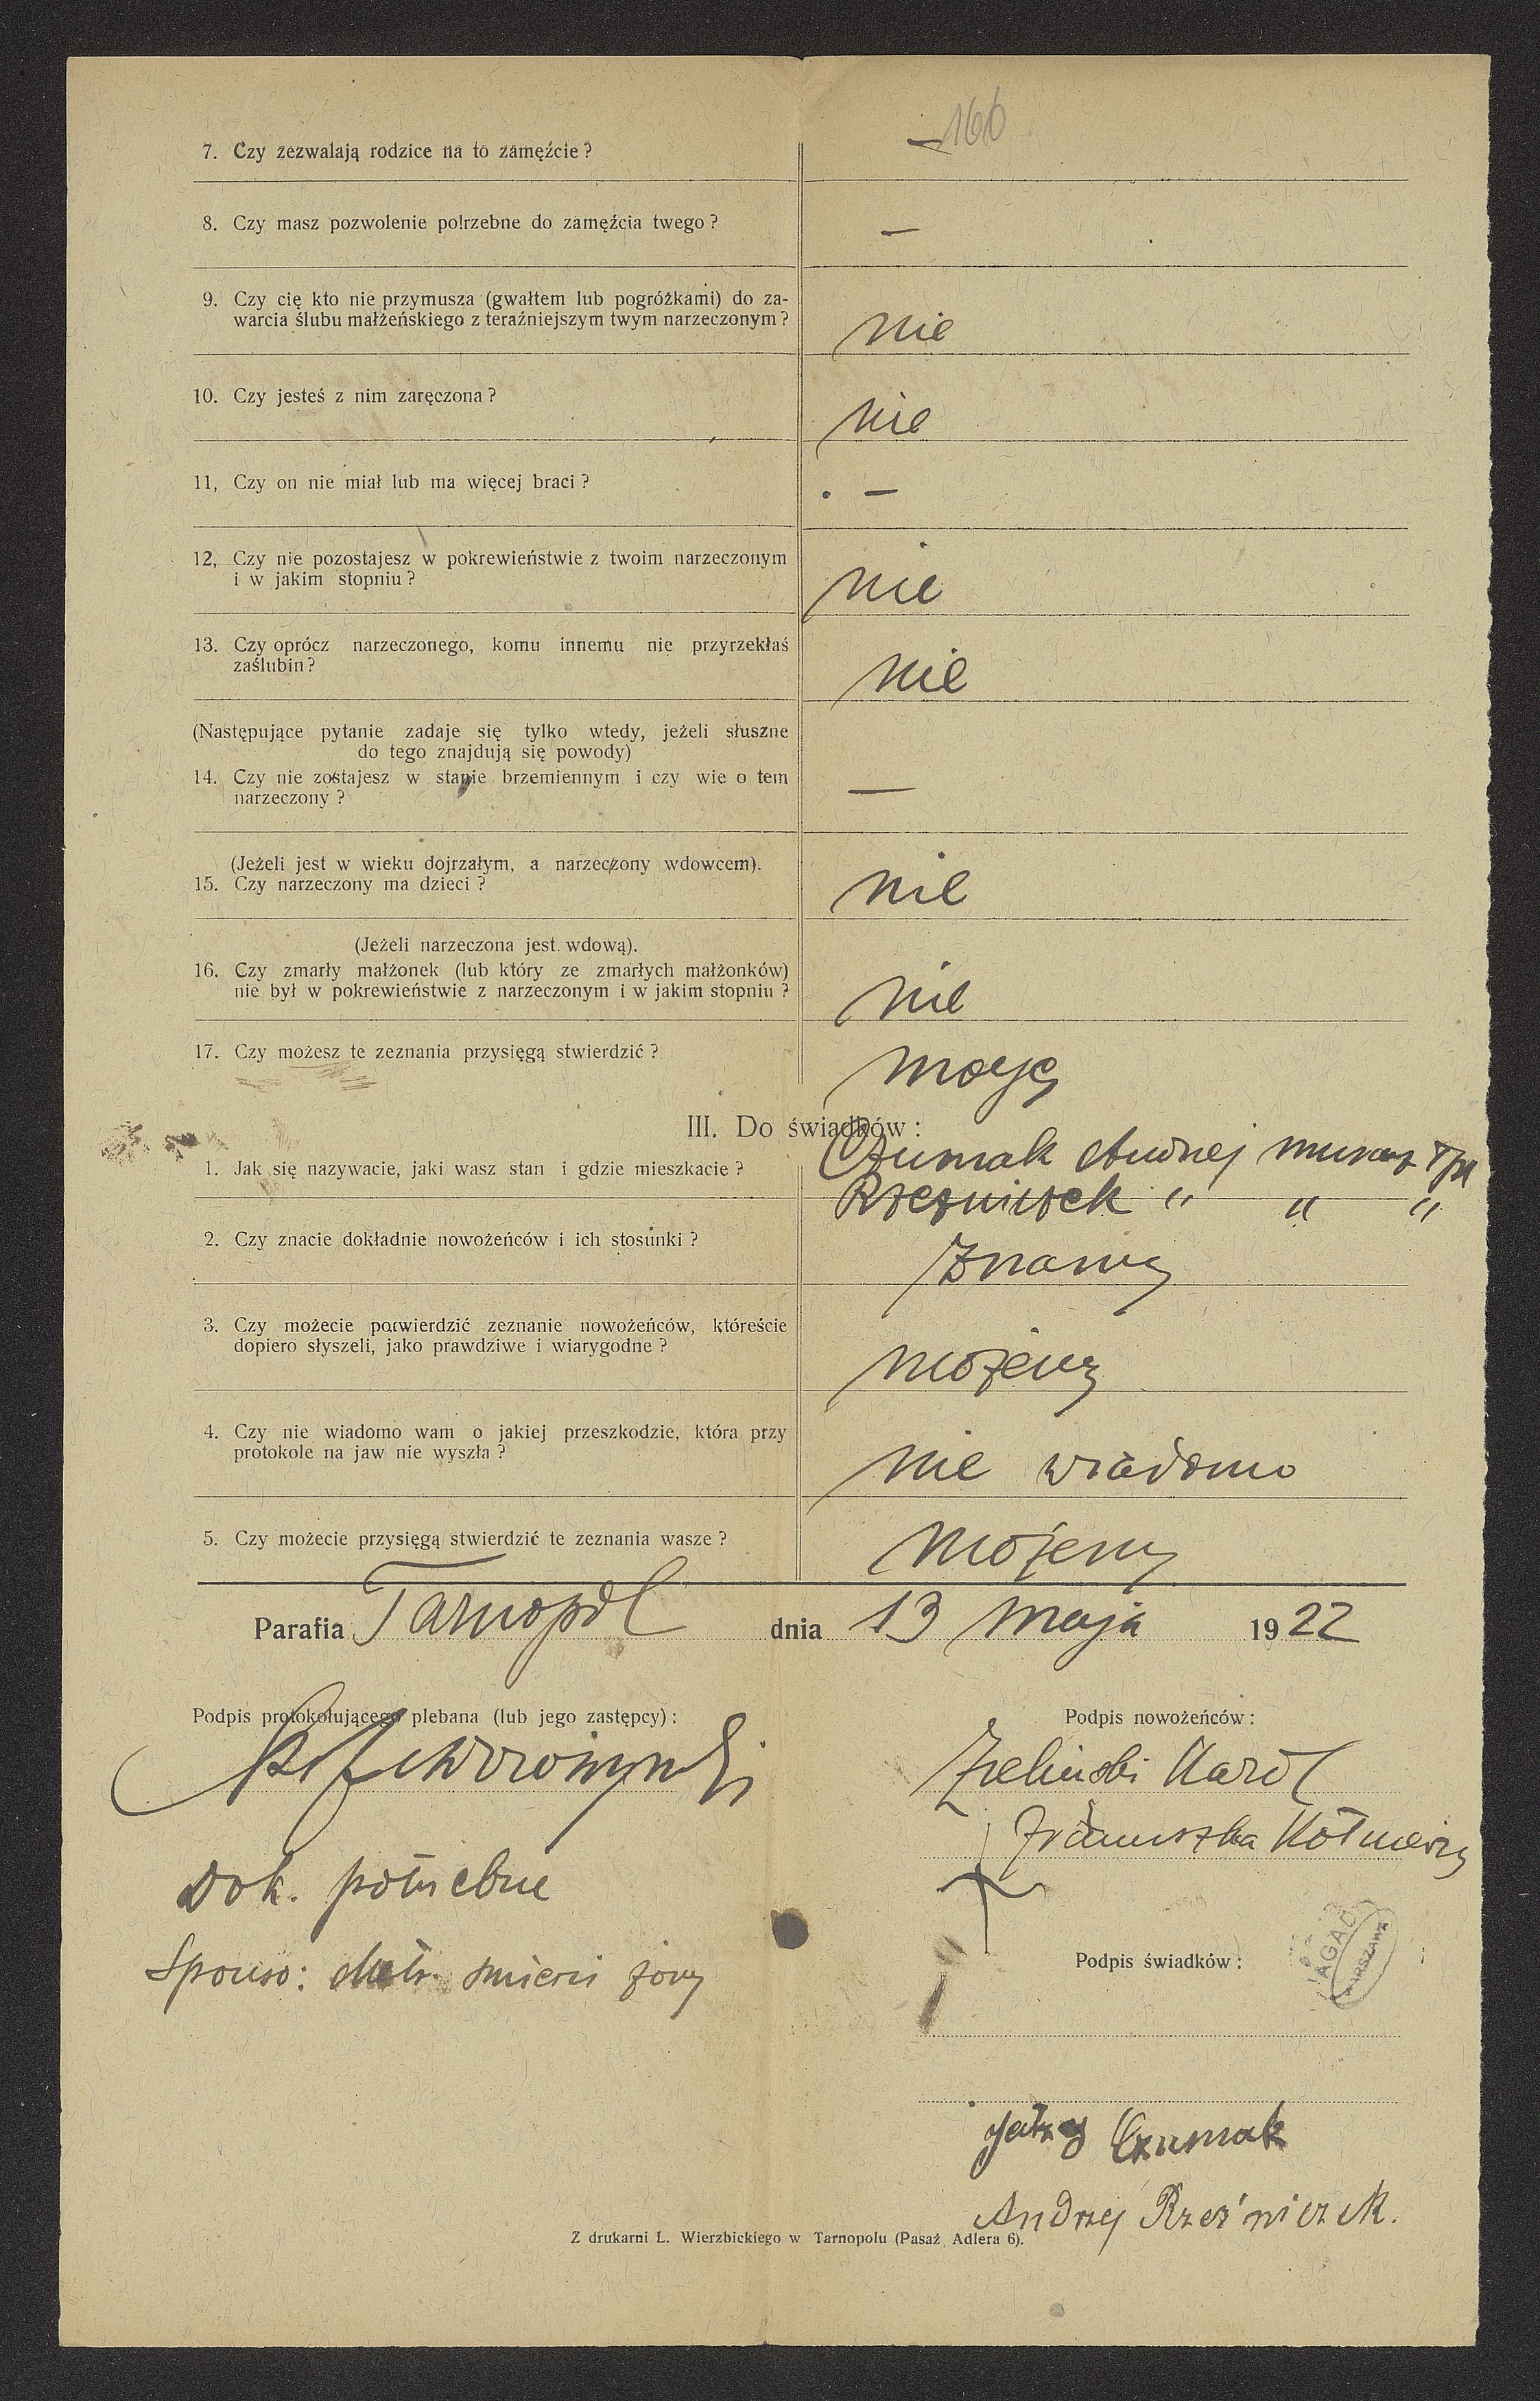 166
7. Czy zezwalają rodzice na to zamęźcie ? —
8. Czy masz pozwolenie potrzebne do zamęźcia twego ? —
9. Czy cię kto nie przymusza (gwałtem lub pogróżkami) do za-
warcia ślubu małżeńskiego z teraźniejszym twym narzeczonym ? nie
10. Czy jesteś z nim zaręczona ? nie
11, Czy on nie miał lub ma więcej braci ? —
12, Czy nie pozostajesz w pokrewieństwie z twoim narzeczonym
i w jakim stopniu ? nie
13. Czy oprócz narzeczonego, komu innemu nie przyrzekłaś
zaślubin ? nie
(Następujące pytanie zadaje się tylko wtedy, jeżeli słuszne
do tego znajdują się powody)
14. Czy nie zostajesz w stanie brzemiennym i czy wie o tem
narzeczony ? —
(Jeżeli jest w wieku dojrzałym, a narzeczony wdowcem).
15. Czy narzeczony ma dzieci ? nie
(Jeżeli narzeczona jest wdową).
16. Czy zmarły małżonek (lub który ze zmarłych małżonków)
nie był w pokrewieństwie z narzeczonym i w jakim stopniu ? nie
17. Czy możesz te zeznania przysięgą stwierdzić ? mogę
III. Do świadków :
1. Jak się nazywacie, jaki wasz stan i gdzie mieszkacie ? Czumak Andrzej murarz Tpl
Rzeźniczek " " "
2. Czy znacie dokładnie nowożeńców i ich stosunki ? Znamy
3. Czy możecie potwierdzić zeznanie nowożeńców, któreście
dopiero słyszeli, jako prawdziwe i wiarygodne ? możemy
4. Czy nie wiadomo wam o jakiej przeszkodzie, która przy
protokole na jaw nie wyszła ? nie wiadomo
5. Czy możecie przysięgą stwierdzić te zeznania wasze ? możemy
Parafia Tarnopol dnia 13 maja 1922
Podpis protokołującego plebana (lub jego zastępcy) :
Podpis nowożeńców :
Zieliński Karol
Franciszka
Dok. potrzebne
Sponso: Metr. śmierci żony
Podpis świadków :
AGAD
WARSZAWA
Czumak
Andrzej Rzeźniczek.
Z drukarni L. Wierzbickiego w Tarnopolu (Pasaż Adlera 6).